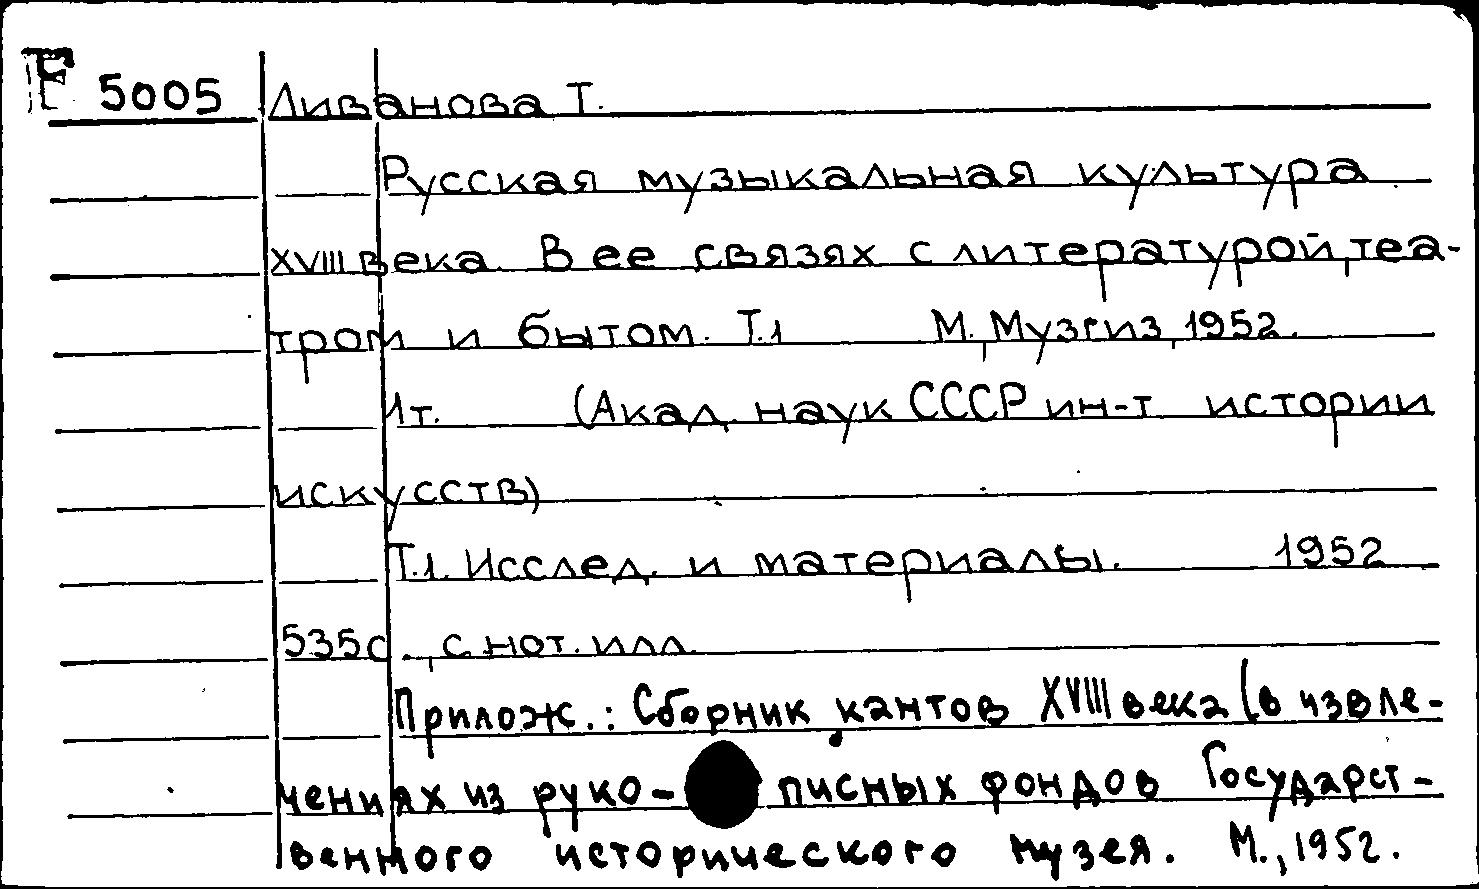 F 5005 Ливанова Т.
Русская музыкальная культура
XVIII века. В ее связях с литературой, теа-
тром и бытом. Т.1 М., Музгиз, 1952.
1т. (Акад. наук СССР ин-т истории
искусств)
Т.1. Исслед. и материалы. 1952
535с., с нот. илл.
Прилож.: Сборник кантов XVIII века (в извле-
чениях из руко- писных фондов Государст-
венного исторического музея. М., 1952.